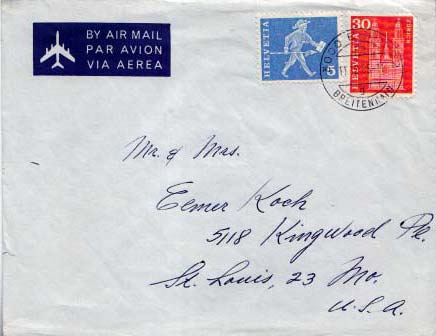 BY AIR MAIL
PAR AVION
VIA AEREA
HELVETIA
5
30
HELVETIA
BREITENBACH
Mr. & Mrs.
Elmer Koch
5118 Kingwood Pl.
St. Louis, 23 Mo.
U.S.A.